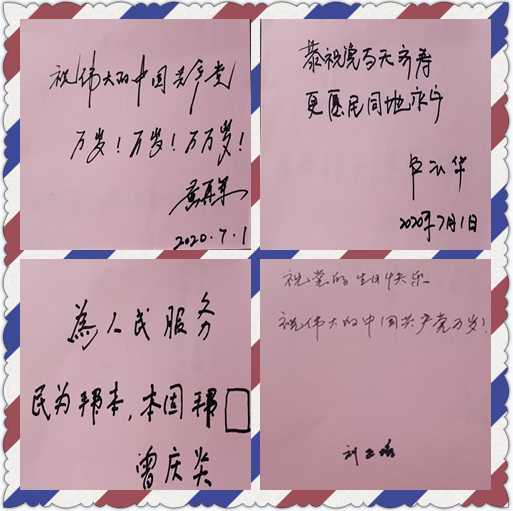 祝伟大的中国共产党
万岁！万岁！万万岁！
2020.7.1
恭祝党与天齐寿
更愿民同地永宁
2020年7月1日
為人民服务
民为邦本，本固邦□
曾庆炎
祝党的生日快乐
祝伟大的中国共产党万岁！